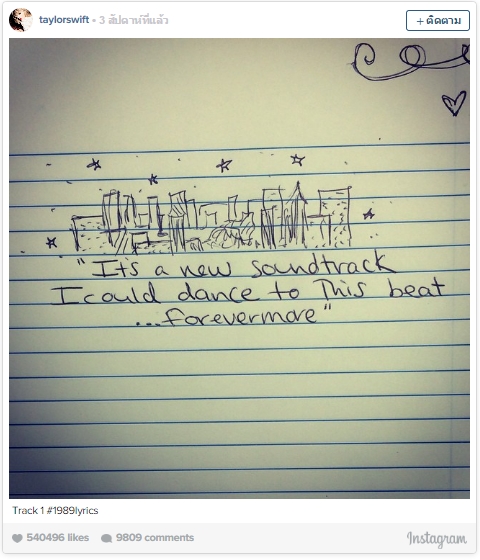 taylorswift • 3 สัปดาห์ที่แล้ว
+ ติดตาม
"It's a new soundtrack
I could dance to This beat
...forevermore"
Track 1 #1989lyrics
540496 likes 9809 comments
Instagram